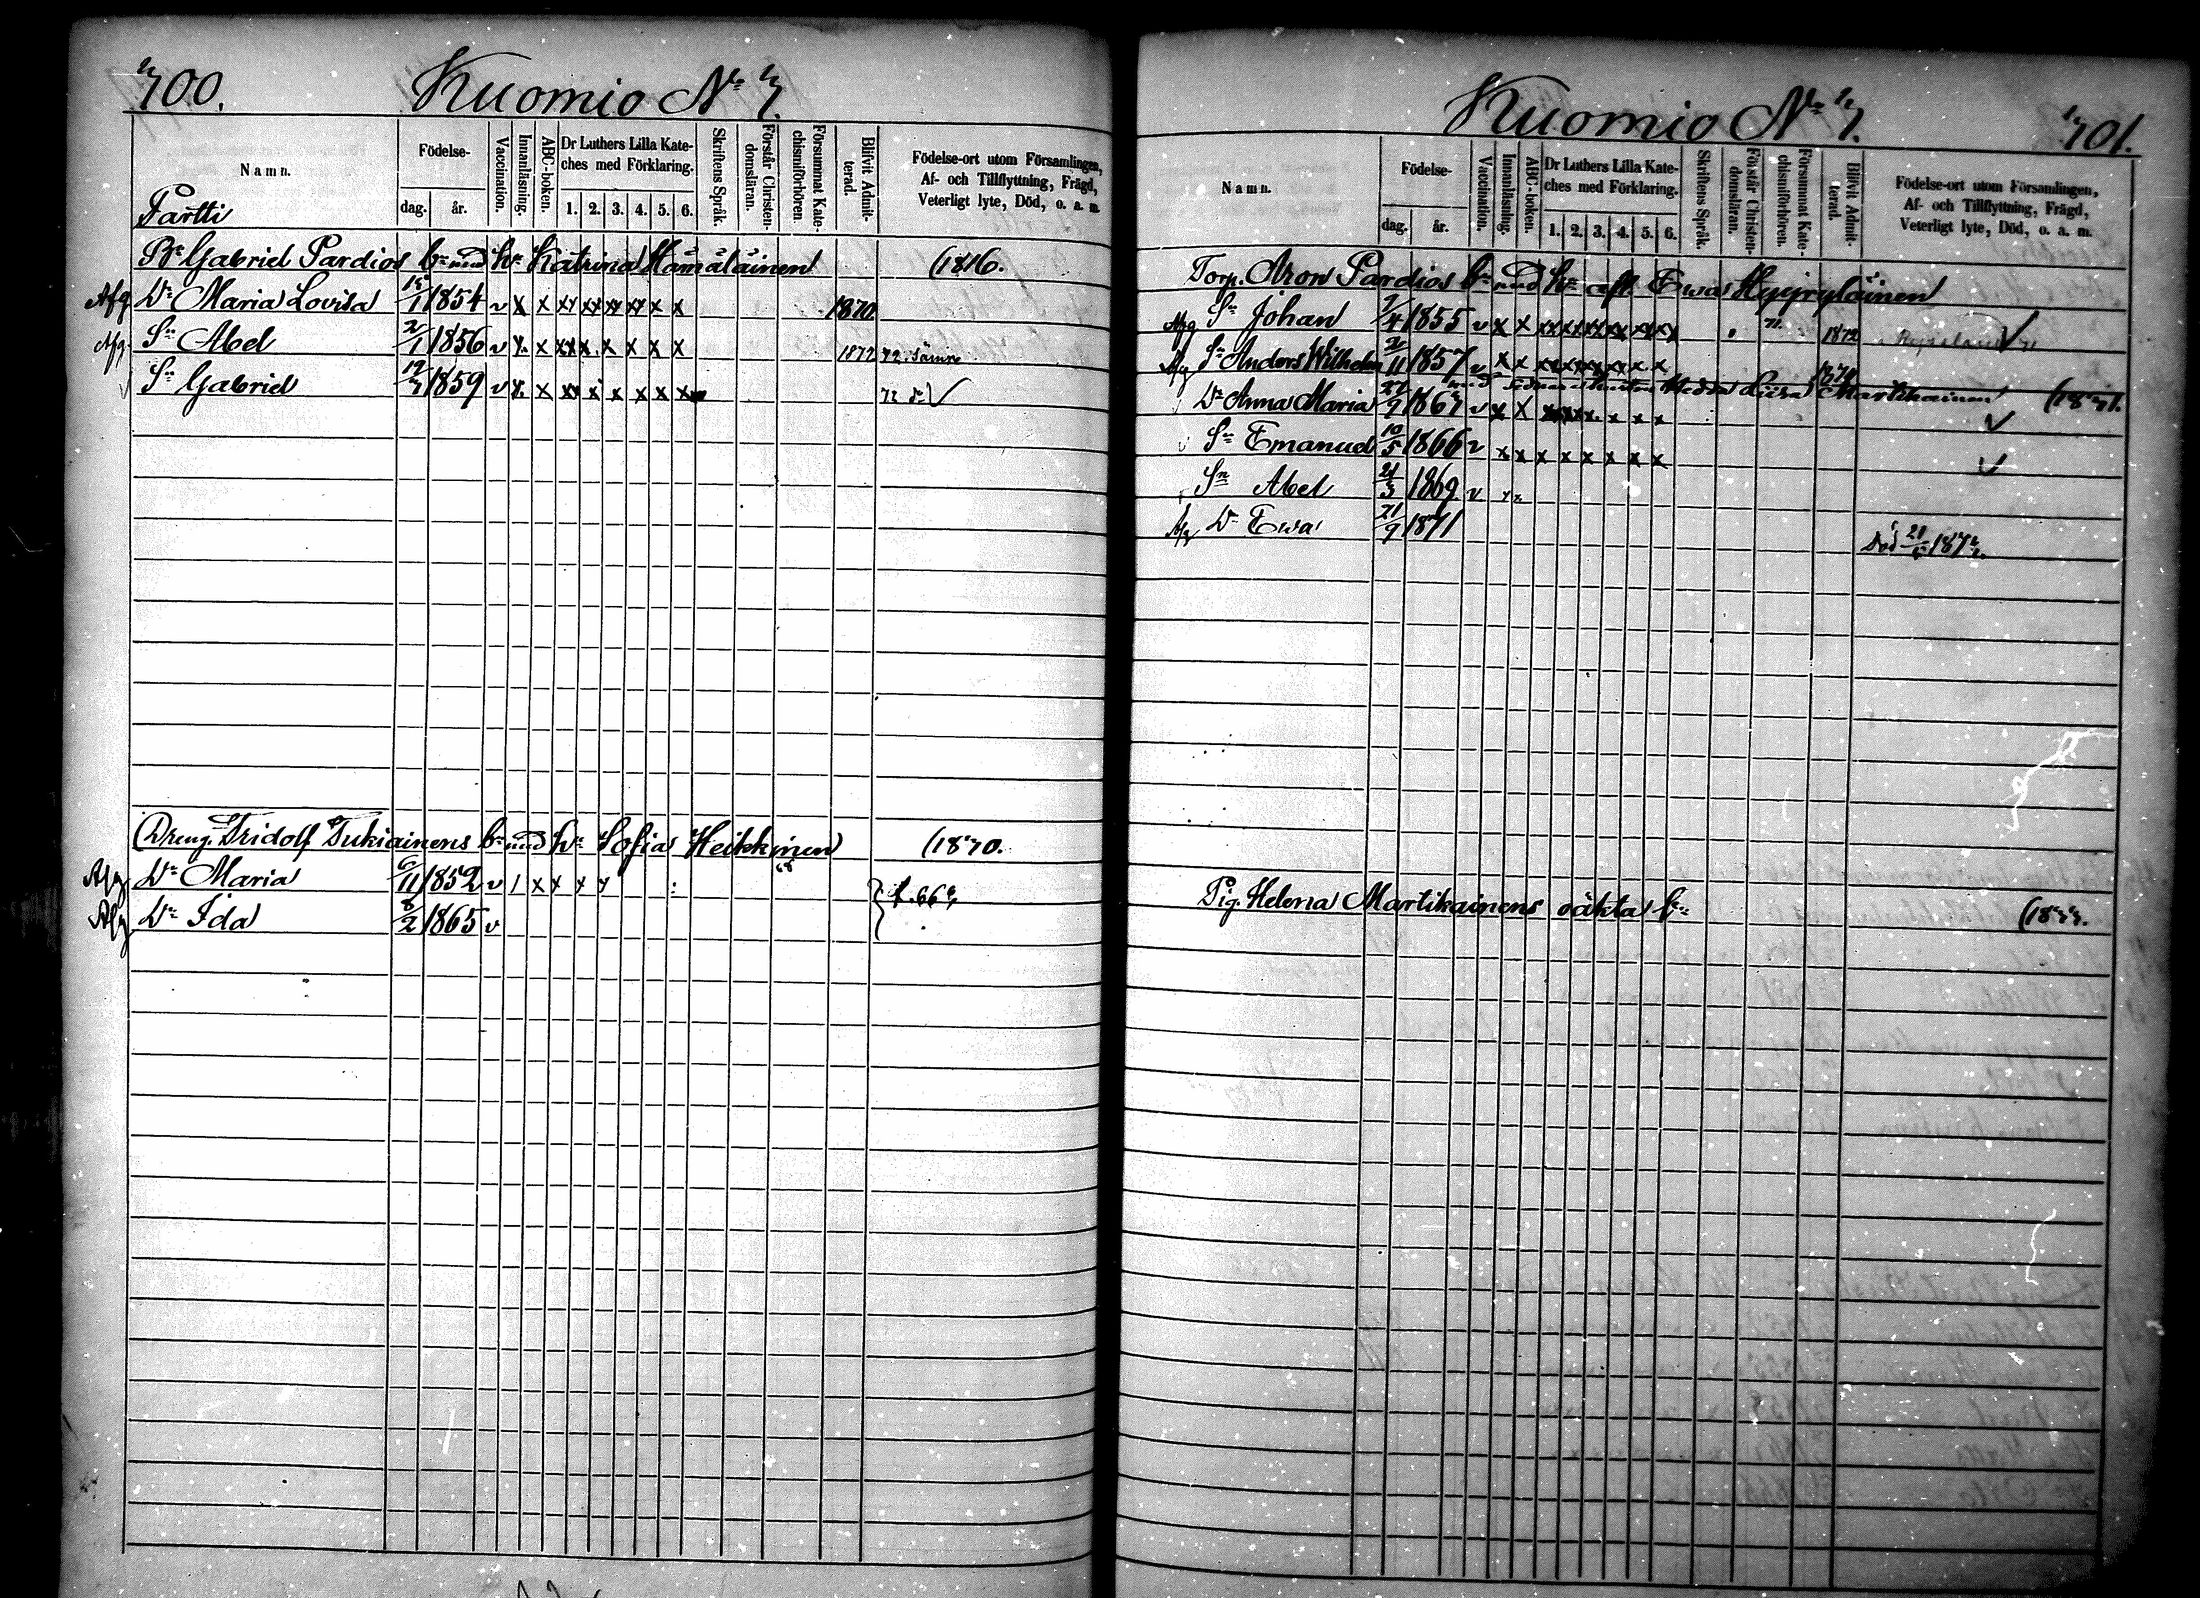 700.
Kuomio No 7.
Namn.
Födelse-
dag.
år.
Vaccination.
Innanläsning.
ABC-boken.
Dr Luthers Lilla Kate-
ches med Förklaring.
1. 2. 3. 4. 5. 6.
Skriftens Språk.
Förstår Christen-
domsläran.
Försummat Kate-
chismiförhören
Blifvit Admit-
terad.
Födelse-ort utom Församlingen,
Af- och Tillflyttning, Frägd,
Veterligt lyte, Död, o. a. m.
Partti
Bn Gabriel Pardios bn med hu Katrina Hämäläinen (1816.
Afg Dr Maria Lovisa 1854 v x x xx xx xx xx x x 1870
Afg Sn Abel 2/1 1856 v x x x x x x x 1872
Sn Gabriel 1859 v x x x x x x x √
(Dreng. Fridolf Tukiainens bn med hu Sofia Heikkinen (1870.
Afg Dr Maria 6/11 1852 v / x x x x
Afg Dr Ida 8/2 1865 v
701.
Kuomio No 7.
Namn.
Födelse-
dag.
år.
Vaccination.
Innanläsning.
ABC-boken.
Dr Luthers Lilla Kate-
ches med Förklaring.
1. 2. 3. 4. 5. 6.
Skriftens Språk.
Förstår Christen-
domsläran.
Försummat Kate-
chismiförhören.
Blifvit Admit-
terad.
Födelse-ort utom Församlingen,
Af- och Tillflyttning, Frägd,
Veterligt lyte, Död, o. a. m.
Torp. Aron Pardios bn med hu afl. Ewa Hyyryläinen
Afg Sn Johan 1855 v x x xx xx xx xx xx xx 1872 √
Afg Sn Anders Wilhelm 1857 v x x
med Martikainen (1871.
Dr Anna Maria v x x √
Sn Emanuel 10/5 1866 v x x x x x x x x √
Sn Abel 1869 v
Afg Dr Ewa 21/9 1871 Död
Pig. Helena Martikainens oäkta bn (1877.